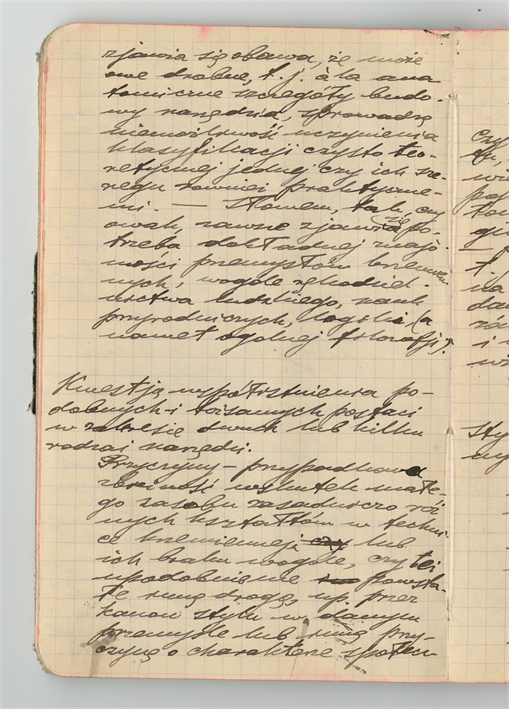 zjawia się obawa, że może
owe drobne, t. j. à la ana
tomiczne szczegóły budo-
wy narzędzia, sprowadzą
niemożliwość uczynienia
klasyfikacji czysto teo-
retycznej jednej czy ich sze-
regu równiej praktyczne-
mi. — Słowem, tak, czy
owak, zawsze zjawia się po-
trzeba dokładnej znajo-
mości przemysłów krzemien-
nych, wogóle rękodziel-
nictwa ludzkiego, nauk
przyrodniczych, logiki (a
nawet ogólnej filozofji).
Kwestja współistnienia po-
dobnych i tożsamych postaci
w zakresie dwuch lub kilku
rodzai narzędzi.
Przyczyny – przypadkowa
zbieżność wskutek małe-
go zasobu zasadniczo róż
nych kształtów w techni
ce krzemiennej, czy lub
ich braku wogóle, czy też
upodobnienie powsta-
łe inną drogą, np. przez
kanon stylu w danym
przemyśle lub inną przy-
czynę o charakterze społecz
czy
t.
i
sty